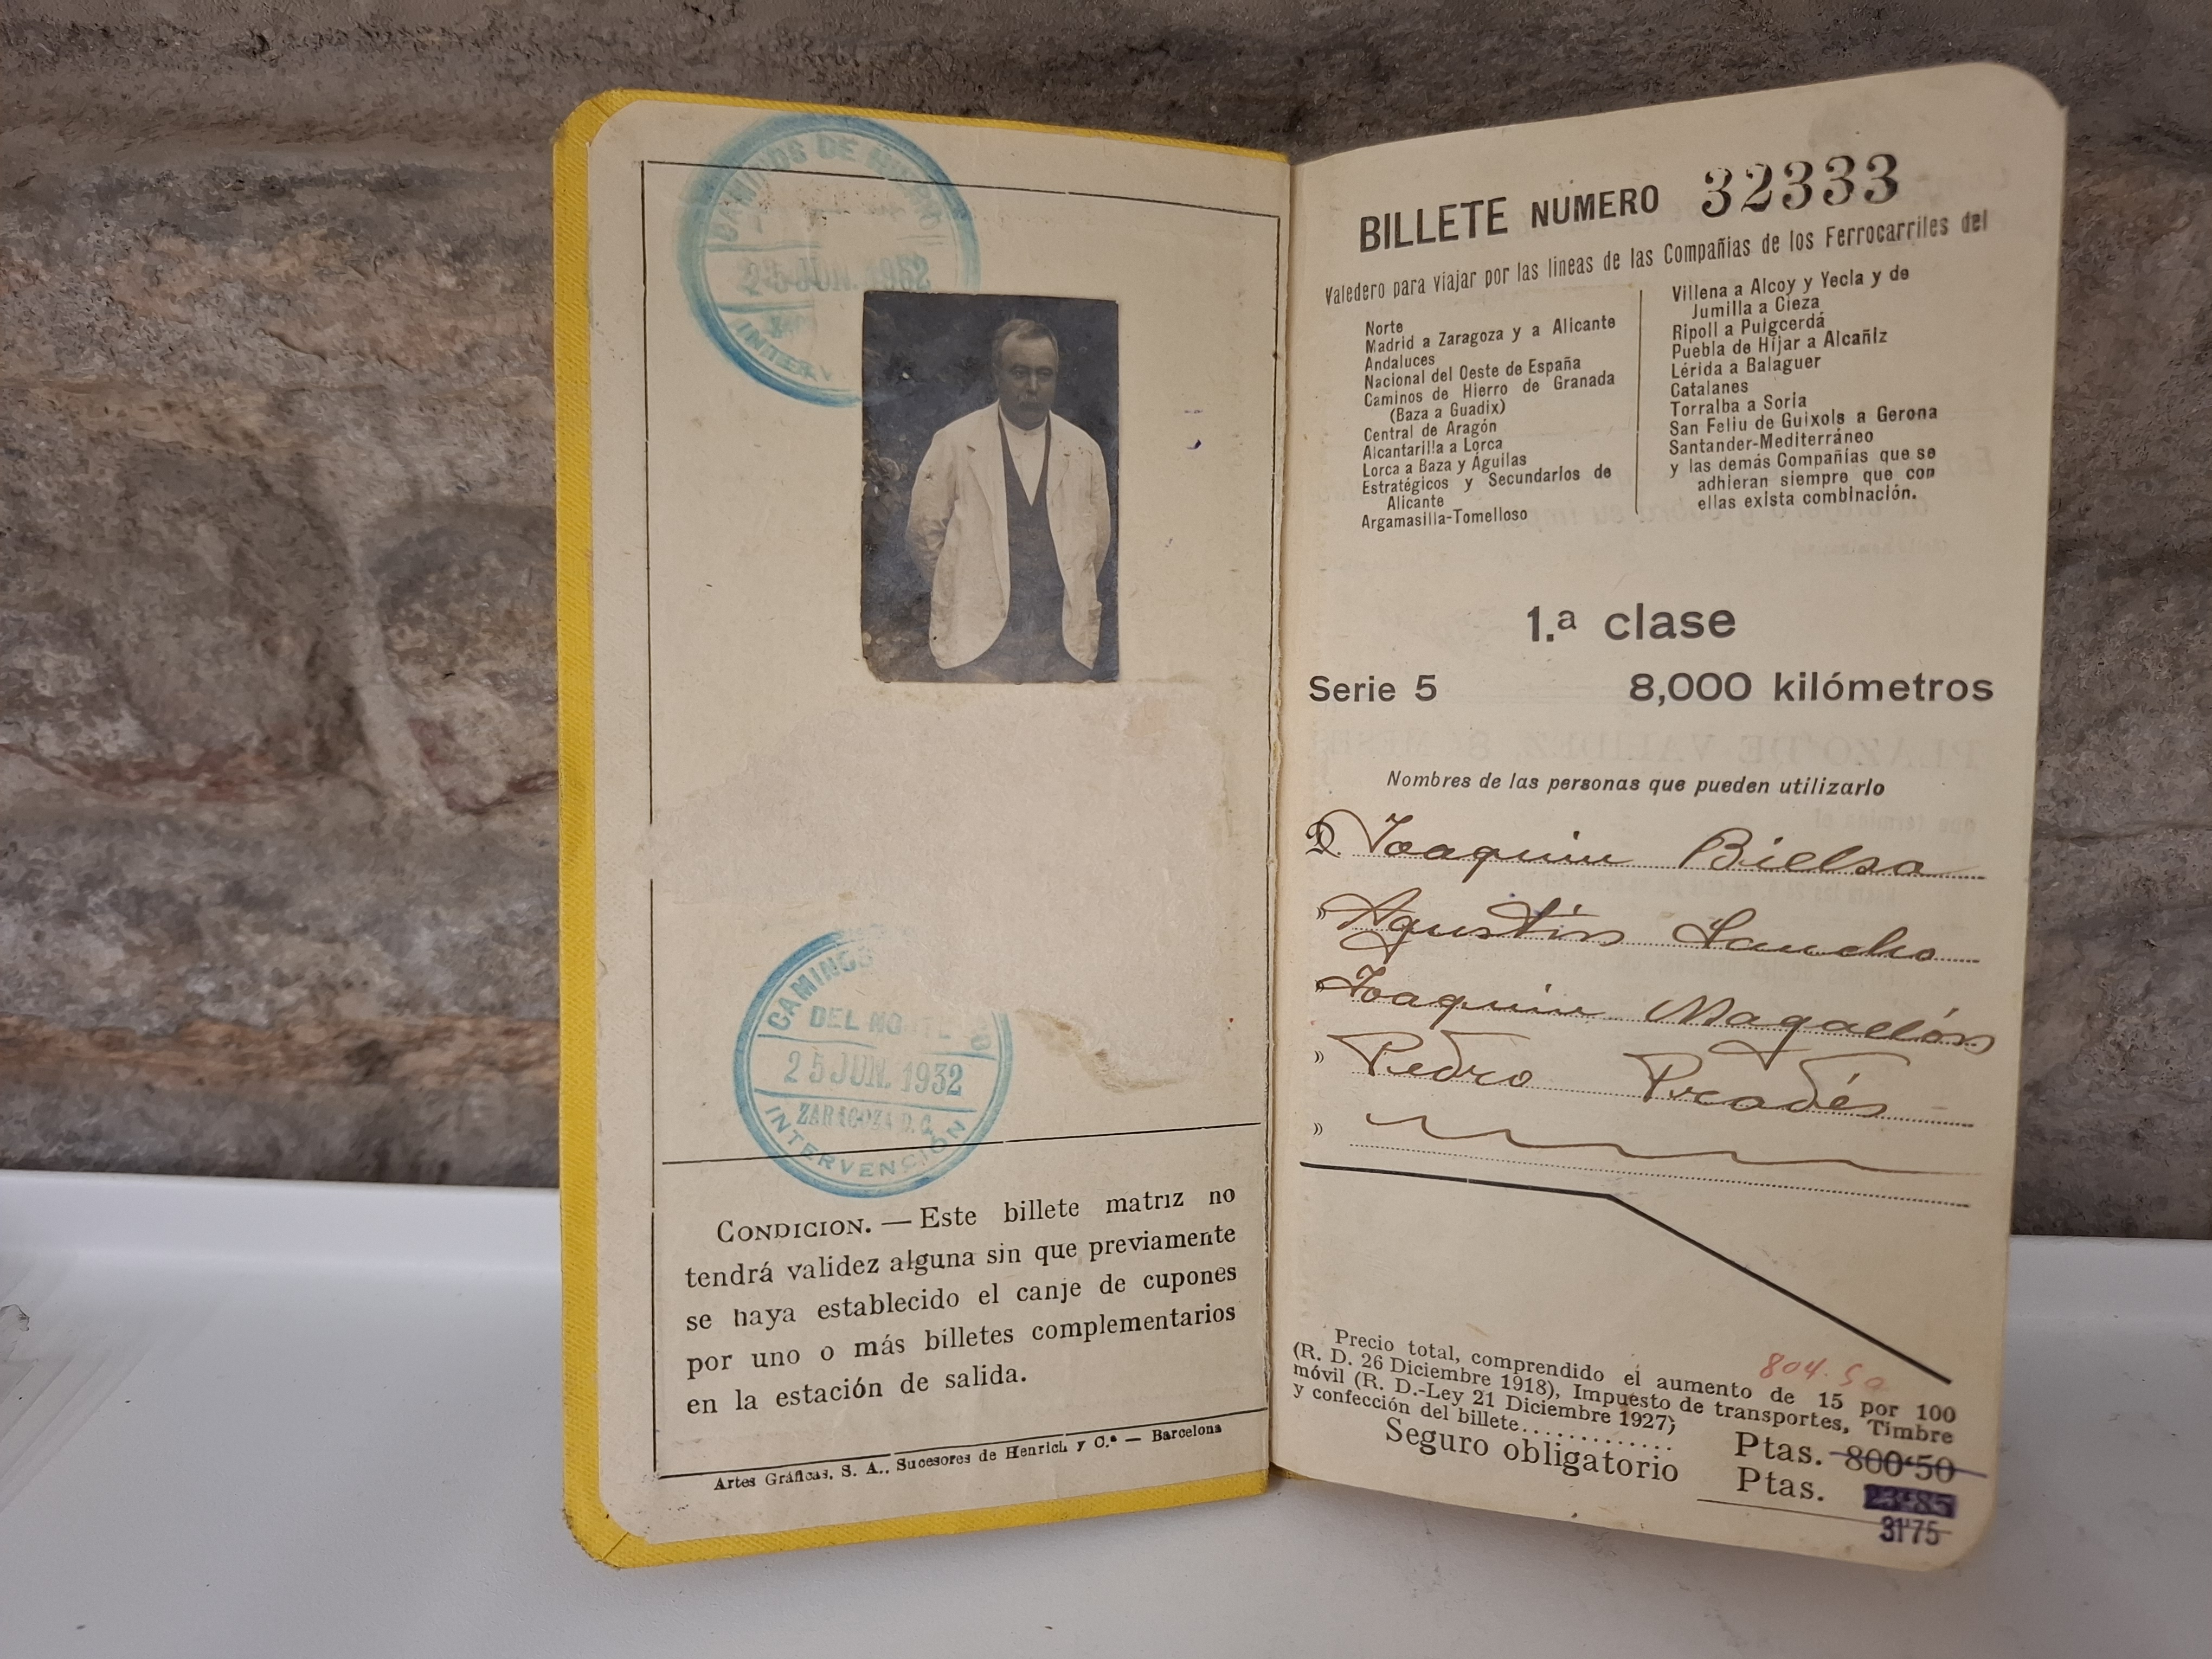 CAMINOS DE HIERRO
25 JUN. 1932
INTERV
CAMINOS
DEL NORTE
25 JUN. 1932
ZARAGOZA D. C.
INTERVENCIÓN
CONDICION. — Este billete matriz no
tendrá validez alguna sin que previamente
se haya establecido el canje de cupones
por uno o más billetes complementarios
en la estación de salida.
Artes Gráficas, S. A., Sucesores de Henrich y C.ª — Barcelona
BILLETE NUMERO 32333
Valedero para viajar por las lineas de las Compañias de los Ferrocarriles del
Norte
Madrid a Zaragoza y a Alicante
Andaluces
Nacional del Oeste de España
Caminos de Hierro de Granada
(Baza a Guadix)
Central de Aragón
Alcantarilla a Lorca
Lorca a Baza y Águilas
Estratégicos y Secundarios de
Alicante
Argamasilla-Tomelloso
Villena a Alcoy y Yecla y de
Jumilla a Cieza
Ripoll a Puigcerdá
Puebla de Híjar a Alcañiz
Lérida a Balaguer
Catalanes
Torralba a Soria
San Feliu de Guixols a Gerona
Santander-Mediterráneo
y las demás Compañías que se
adhieran siempre que con
ellas exista combinación.
1.ª clase
Serie 5 8,000 kilómetros
Nombres de las personas que pueden utilizarlo
D. Joaquin Bielsa
» Agustin Sancho
» Joaquin Magallón
» Pedro Pradés
»
804.50
Precio total, comprendido el aumento de 15 por 100
(R. D. 26 Diciembre 1918), Impuesto de transportes, Timbre
móvil (R. D.-Ley 21 Diciembre 1927)
y confección del billete............. Ptas. 800'50
Seguro obligatorio Ptas. 23'85
31'75